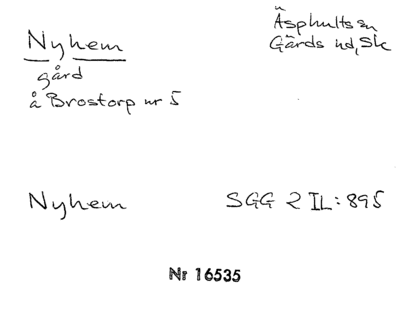 Nyhem
gård
å Brostorp nr 5
Äsphults sn
Gärds hd, Sk
Nyhem
SGG 2 IL: 895
Nr 16535